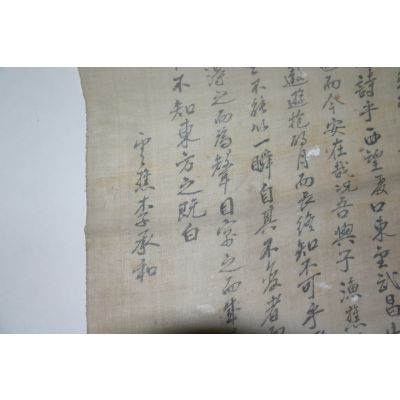 詩乎西望夏口東望武昌山
而今安在哉況吾與子漁樵
遨遊抱明月而長終知不可乎
不能以一瞬自其不變者而
得之而為聲目寓之而成
不知東方之既白
雲樵李承和